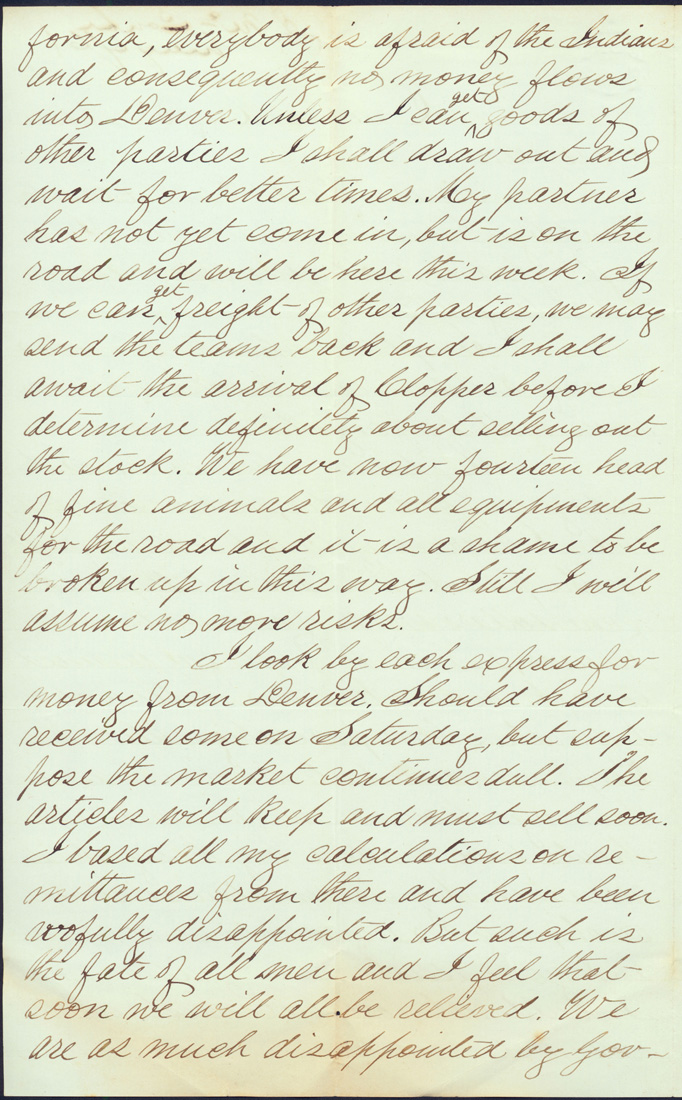 fornia, everybody is afraid of the Indians
and consequently no money flows
into Denver. Unless I can get goods of
other parties I shall draw out and
wait for better times. My partner
has not yet come in, but is on the
road and will be here this week. If
we can get freight of other parties, we may
send the teams back and I shall
await the arrival of Clopper before I
determine definitely about selling out
the stock. We have now fourteen head
of fine animals and all equipments
for the road and it is a shame to be
broken up in this way. Still I will
assume no more risks.
I look by each express for
money from Denver. Should have
received some on Saturday, but sup-
pose the market continues dull. The
articles will keep and must sell soon.
I based all my calculations on re-
mittances from there and have been
wofully disappointed. But such is
the fate of all men and I feel that
soon we will all be relieved. We
are as much disappointed by Gov-